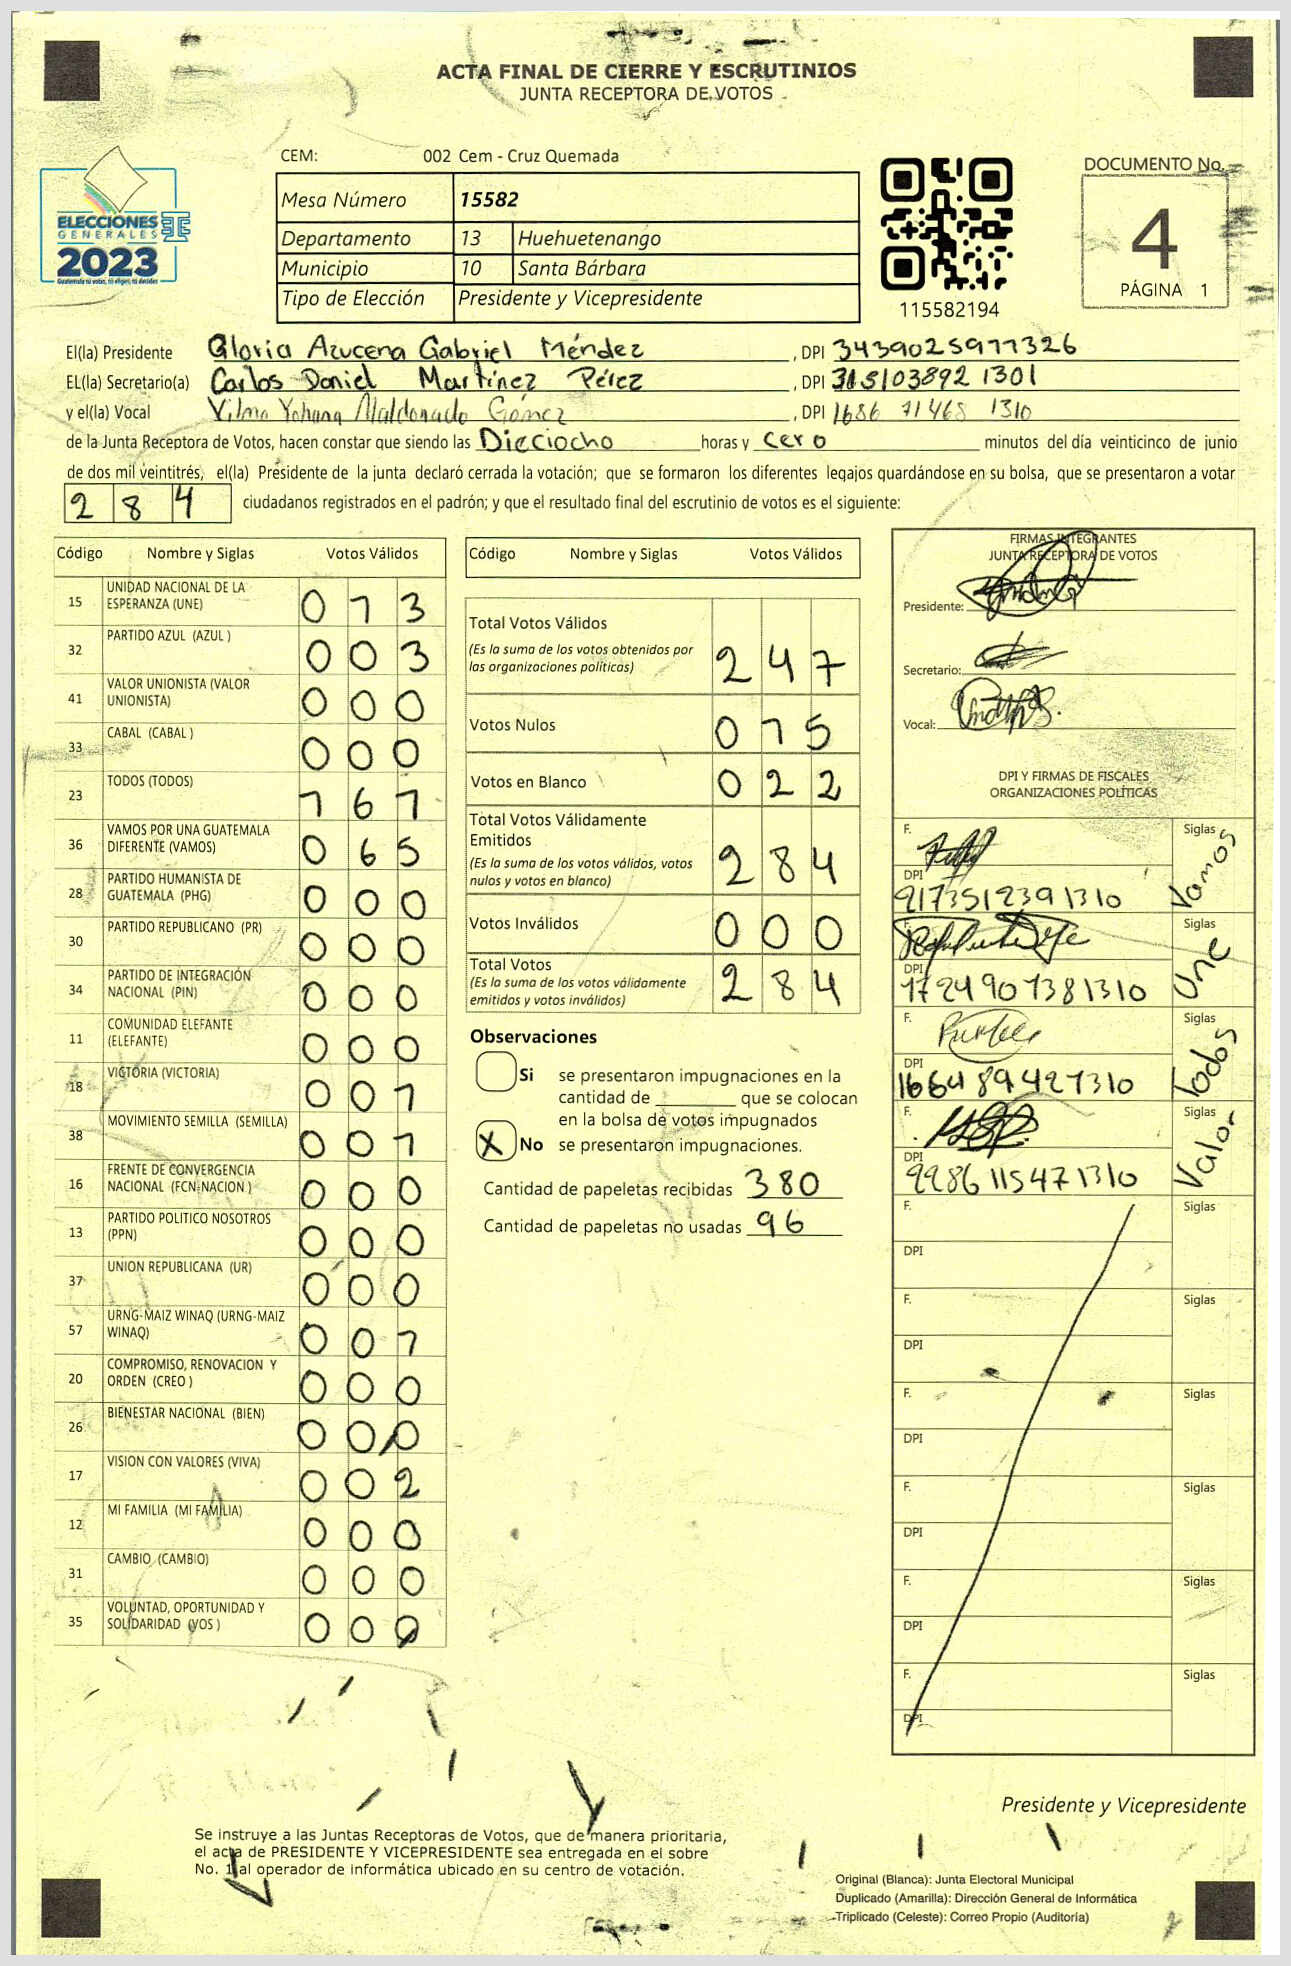 ACTA FINAL DE CIERRE Y ESCRUTINIOS
JUNTA RECEPTORA DE VOTOS
ELECCIONES
GENERALES
2023
Guatemala tú votas, tú eliges, tú decides
CEM: 002 Cem - Cruz Quemada
Mesa Número 15582
Departamento 13 Huehuetenango
Municipio 10 Santa Bárbara
Tipo de Elección Presidente y Vicepresidente
115582194
DOCUMENTO No.
4
PÁGINA 1
El(la) Presidente Gloria Azucena Gabriel Méndez, DPI 3439025911326
EL(la) Secretario(a) Carlos Daniel Martínez Pérez, DPI 315103892 1301
y el(la) Vocal Vilma Yohana Maldonado Gómez, DPI 1686 71468 1310
de la Junta Receptora de Votos, hacen constar que siendo las Dieciocho horas y cero minutos del día veinticinco de junio
de dos mil veintitrés, el(la) Presidente de la junta declaró cerrada la votación; que se formaron los diferentes legajos quardándose en su bolsa, que se presentaron a votar
284 ciudadanos registrados en el padrón; y que el resultado final del escrutinio de votos es el siguiente:
Código Nombre y Siglas Votos Válidos
15 UNIDAD NACIONAL DE LA ESPERANZA (UNE) 013
32 PARTIDO AZUL (AZUL ) 003
41 VALOR UNIONISTA (VALOR UNIONISTA) 000
33 CABAL (CABAL ) 000
23 TODOS (TODOS) 161
36 VAMOS POR UNA GUATEMALA DIFERENTE (VAMOS) 065
28 PARTIDO HUMANISTA DE GUATEMALA (PHG) 000
30 PARTIDO REPUBLICANO (PR) 000
34 PARTIDO DE INTEGRACIÓN NACIONAL (PIN) 000
11 COMUNIDAD ELEFANTE (ELEFANTE) 000
18 VICTORIA (VICTORIA) 001
38 MOVIMIENTO SEMILLA (SEMILLA) 001
16 FRENTE DE CONVERGENCIA NACIONAL (FCN-NACION ) 000
13 PARTIDO POLITICO NOSOTROS (PPN) 000
37 UNION REPUBLICANA (UR) 000
57 URNG-MAIZ WINAQ (URNG-MAIZ WINAQ) 001
20 COMPROMISO, RENOVACION Y ORDEN (CREO ) 000
26 BIENESTAR NACIONAL (BIEN) 000
17 VISION CON VALORES (VIVA) 002
12 MI FAMILIA (MI FAMILIA) 000
31 CAMBIO (CAMBIO) 000
35 VOLUNTAD, OPORTUNIDAD Y SOLIDARIDAD (VOS ) 000
Código Nombre y Siglas Votos Válidos
Total Votos Válidos 247
(Es la suma de los votos obtenidos por
las organizaciones políticas)
Votos Nulos 015
Votos en Blanco 022
Total Votos Válidamente
Emitidos 284
(Es la suma de los votos válidos, votos
nulos y votos en blanco)
Votos Inválidos 000
Total Votos 284
(Es la suma de los votos válidamente
emitidos y votos inválidos)
Observaciones
Si se presentaron impugnaciones en la
cantidad de ________ que se colocan
en la bolsa de votos impugnados
X No se presentaron impugnaciones.
Cantidad de papeletas recibidas 380
Cantidad de papeletas no usadas 96
FIRMAS INTEGRANTES
JUNTA RECEPTORA DE VOTOS
Presidente:
Secretario:
Vocal:
DPI Y FIRMAS DE FISCALES
ORGANIZACIONES POLÍTICAS
F. Siglas Vamos
DPI 2173512391310
F. Siglas Une
DPI 1724907381310
F. Siglas Todos
DPI 1664894271310
F. Siglas Valor
DPI 2286115471310
F. Siglas
DPI
F. Siglas
DPI
F. Siglas
DPI
F. Siglas
DPI
F. Siglas
DPI
F. Siglas
DPI
Presidente y Vicepresidente
Se instruye a las Juntas Receptoras de Votos, que de manera prioritaria,
el acta de PRESIDENTE Y VICEPRESIDENTE sea entregada en el sobre
No. 1 al operador de informática ubicado en su centro de votación.
Original (Blanca): Junta Electoral Municipal
Duplicado (Amarilla): Dirección General de Informática
Triplicado (Celeste): Correo Propio (Auditoría)